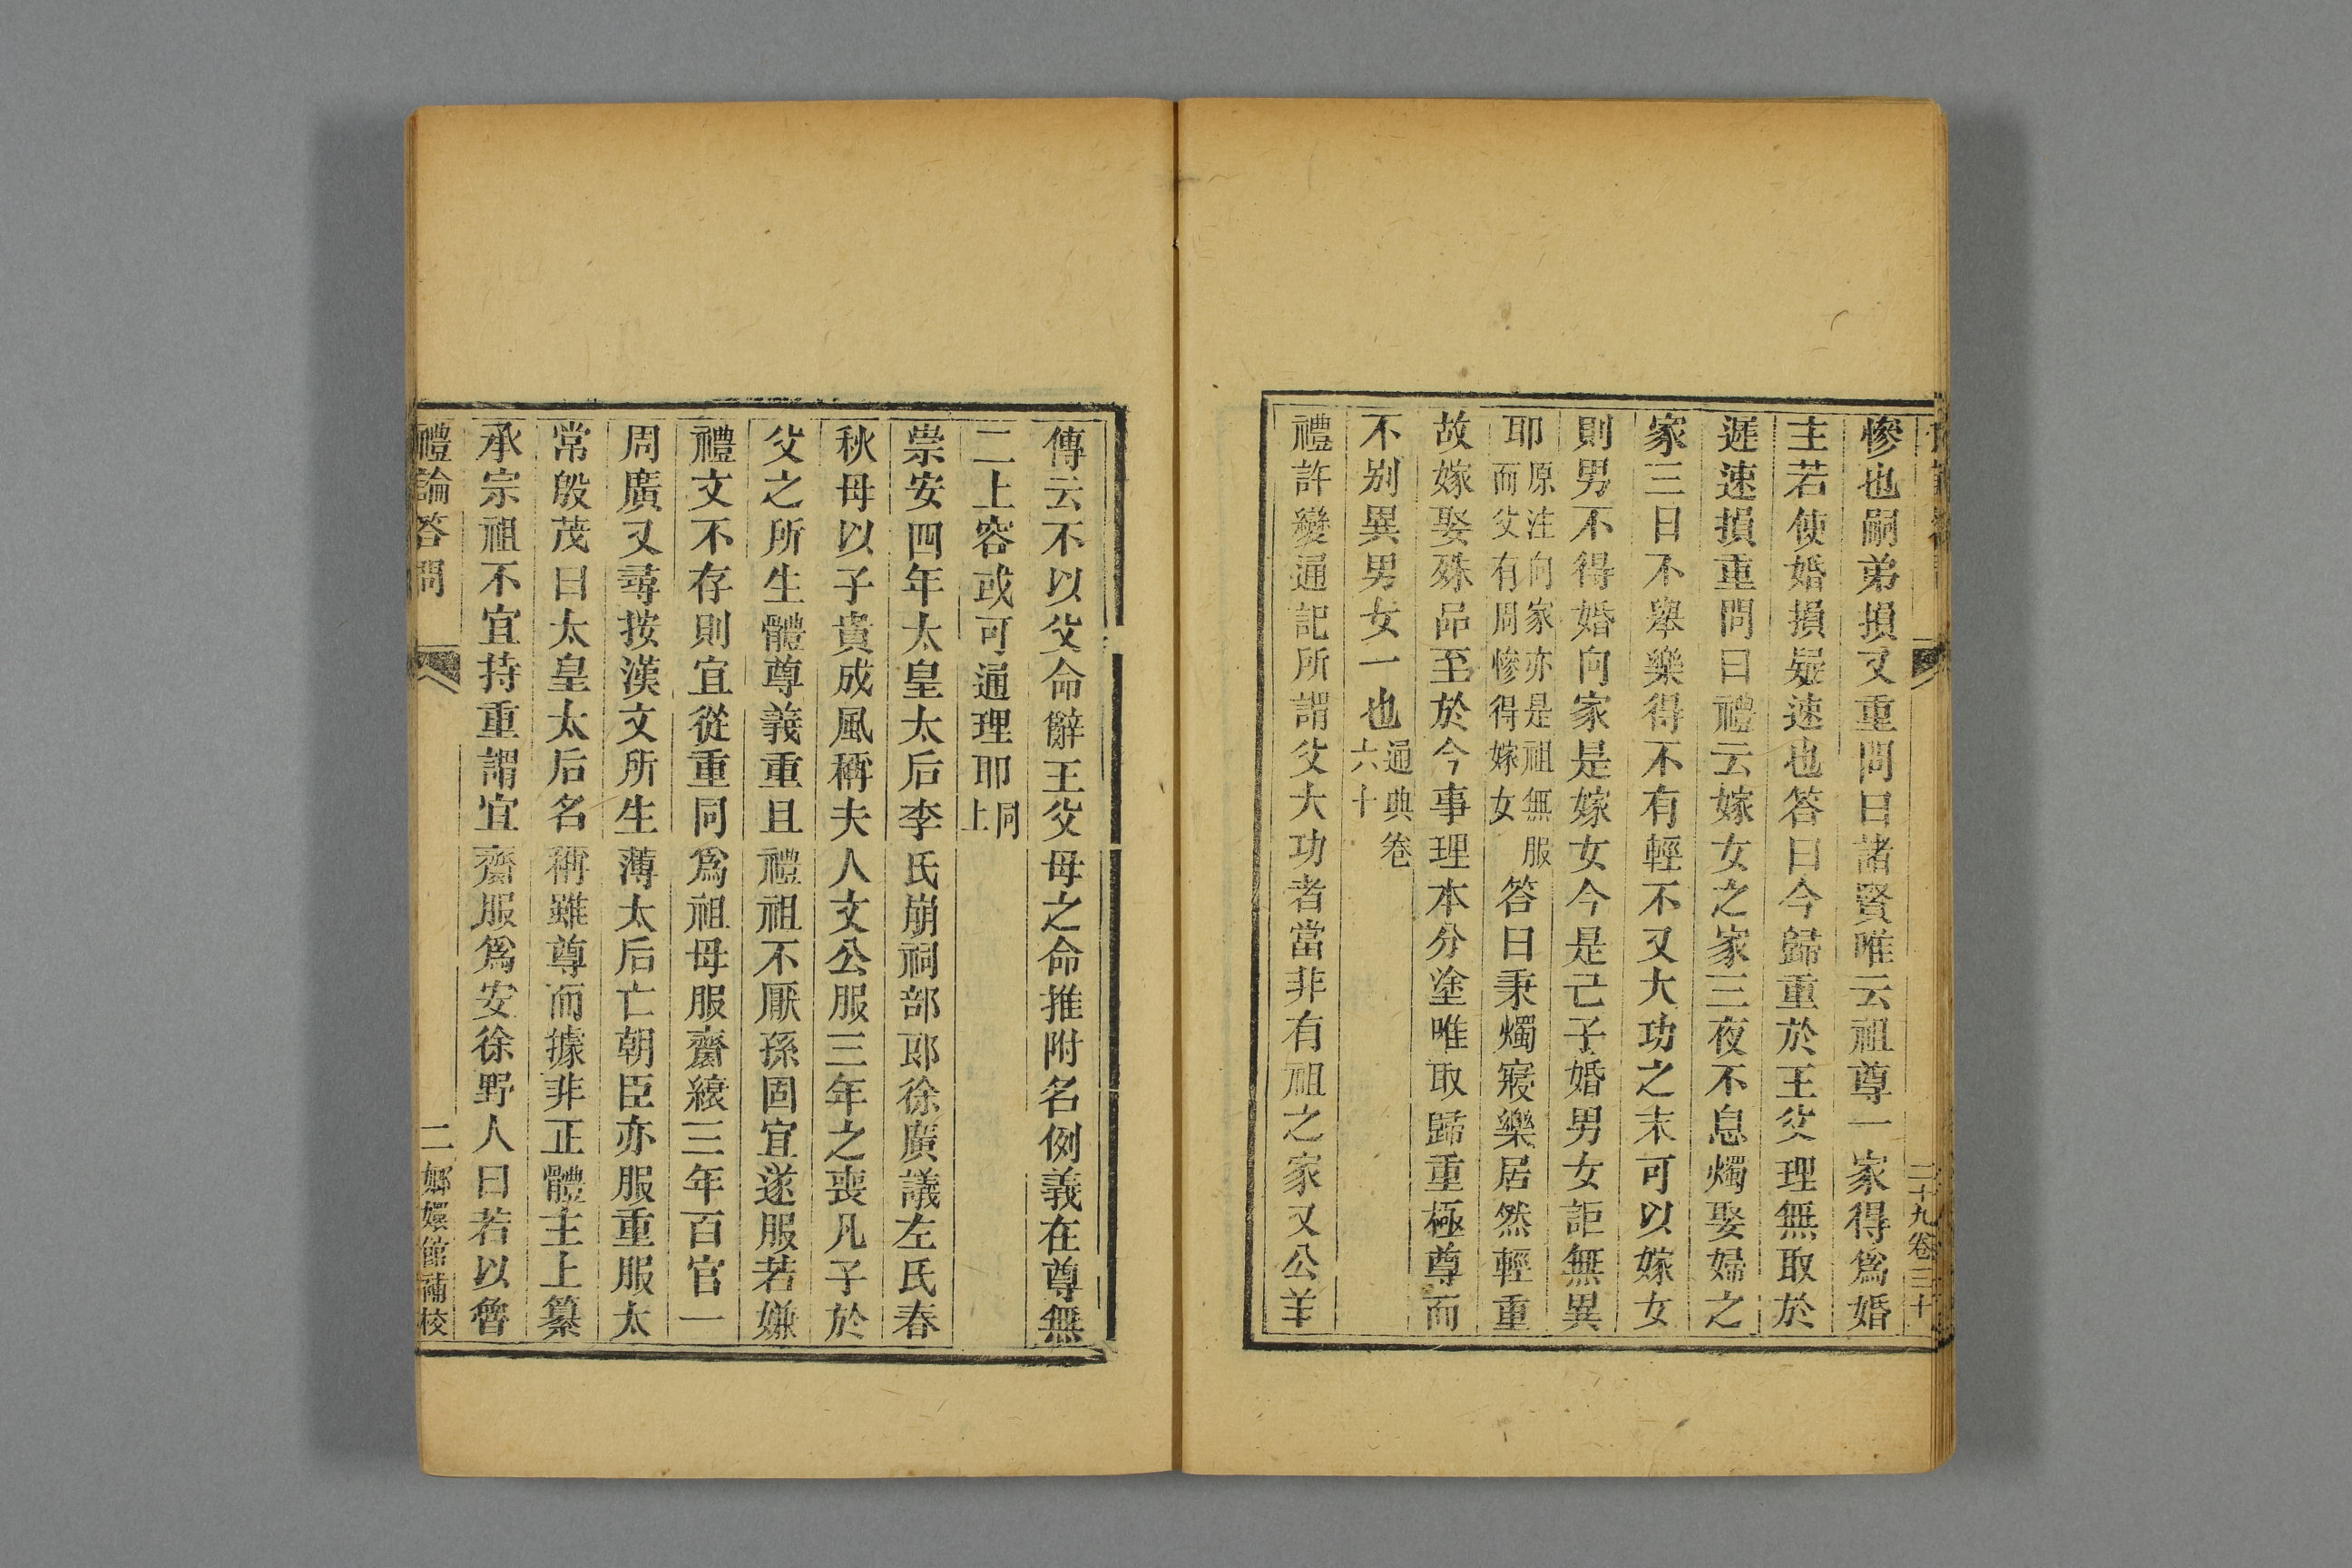 二十九卷三十
慘也嗣弟損又重問曰諸賢唯云祖尊一家得爲婚
主若使婚損疑速也答曰今歸重於王父理無取於
遲速損重問曰禮云嫁女之家三夜不息燭娶婦之
家三日不舉樂得不有輕不又大功之末可以嫁女
則男不得婚向家是嫁女今是己子婚男女詎無異
耶原注向家亦是祖無服而父有周慘得嫁女答曰秉燭寢樂居然輕重
故嫁娶殊品至於今事理本分塗唯取歸重極尊而
不别異男女一也通典卷六十
禮許變通記所謂父大功者當非有祖之家又公羊
傳云不以父命辭王父母之命推附名例義在尊無
二上容或可通理耶同上
崇安四年太皇太后李氏崩祠部郎徐廣議左氏春
秋母以子貴成風稱夫人文公服三年之喪凡子於
父之所生體尊義重且禮祖不厭孫固宜遂服若嫌
禮文不存則宜從重同爲祖母服齋縗三年百官一
周廣又尋按漢文所生薄太后亡朝臣亦服重服太
常殷茂曰太皇太后名稱雖尊而據非正體主上纂
承宗祖不宜持重謂宜齋服爲安徐野人曰若以魯
禮論答問 二 嫏嬛館補校